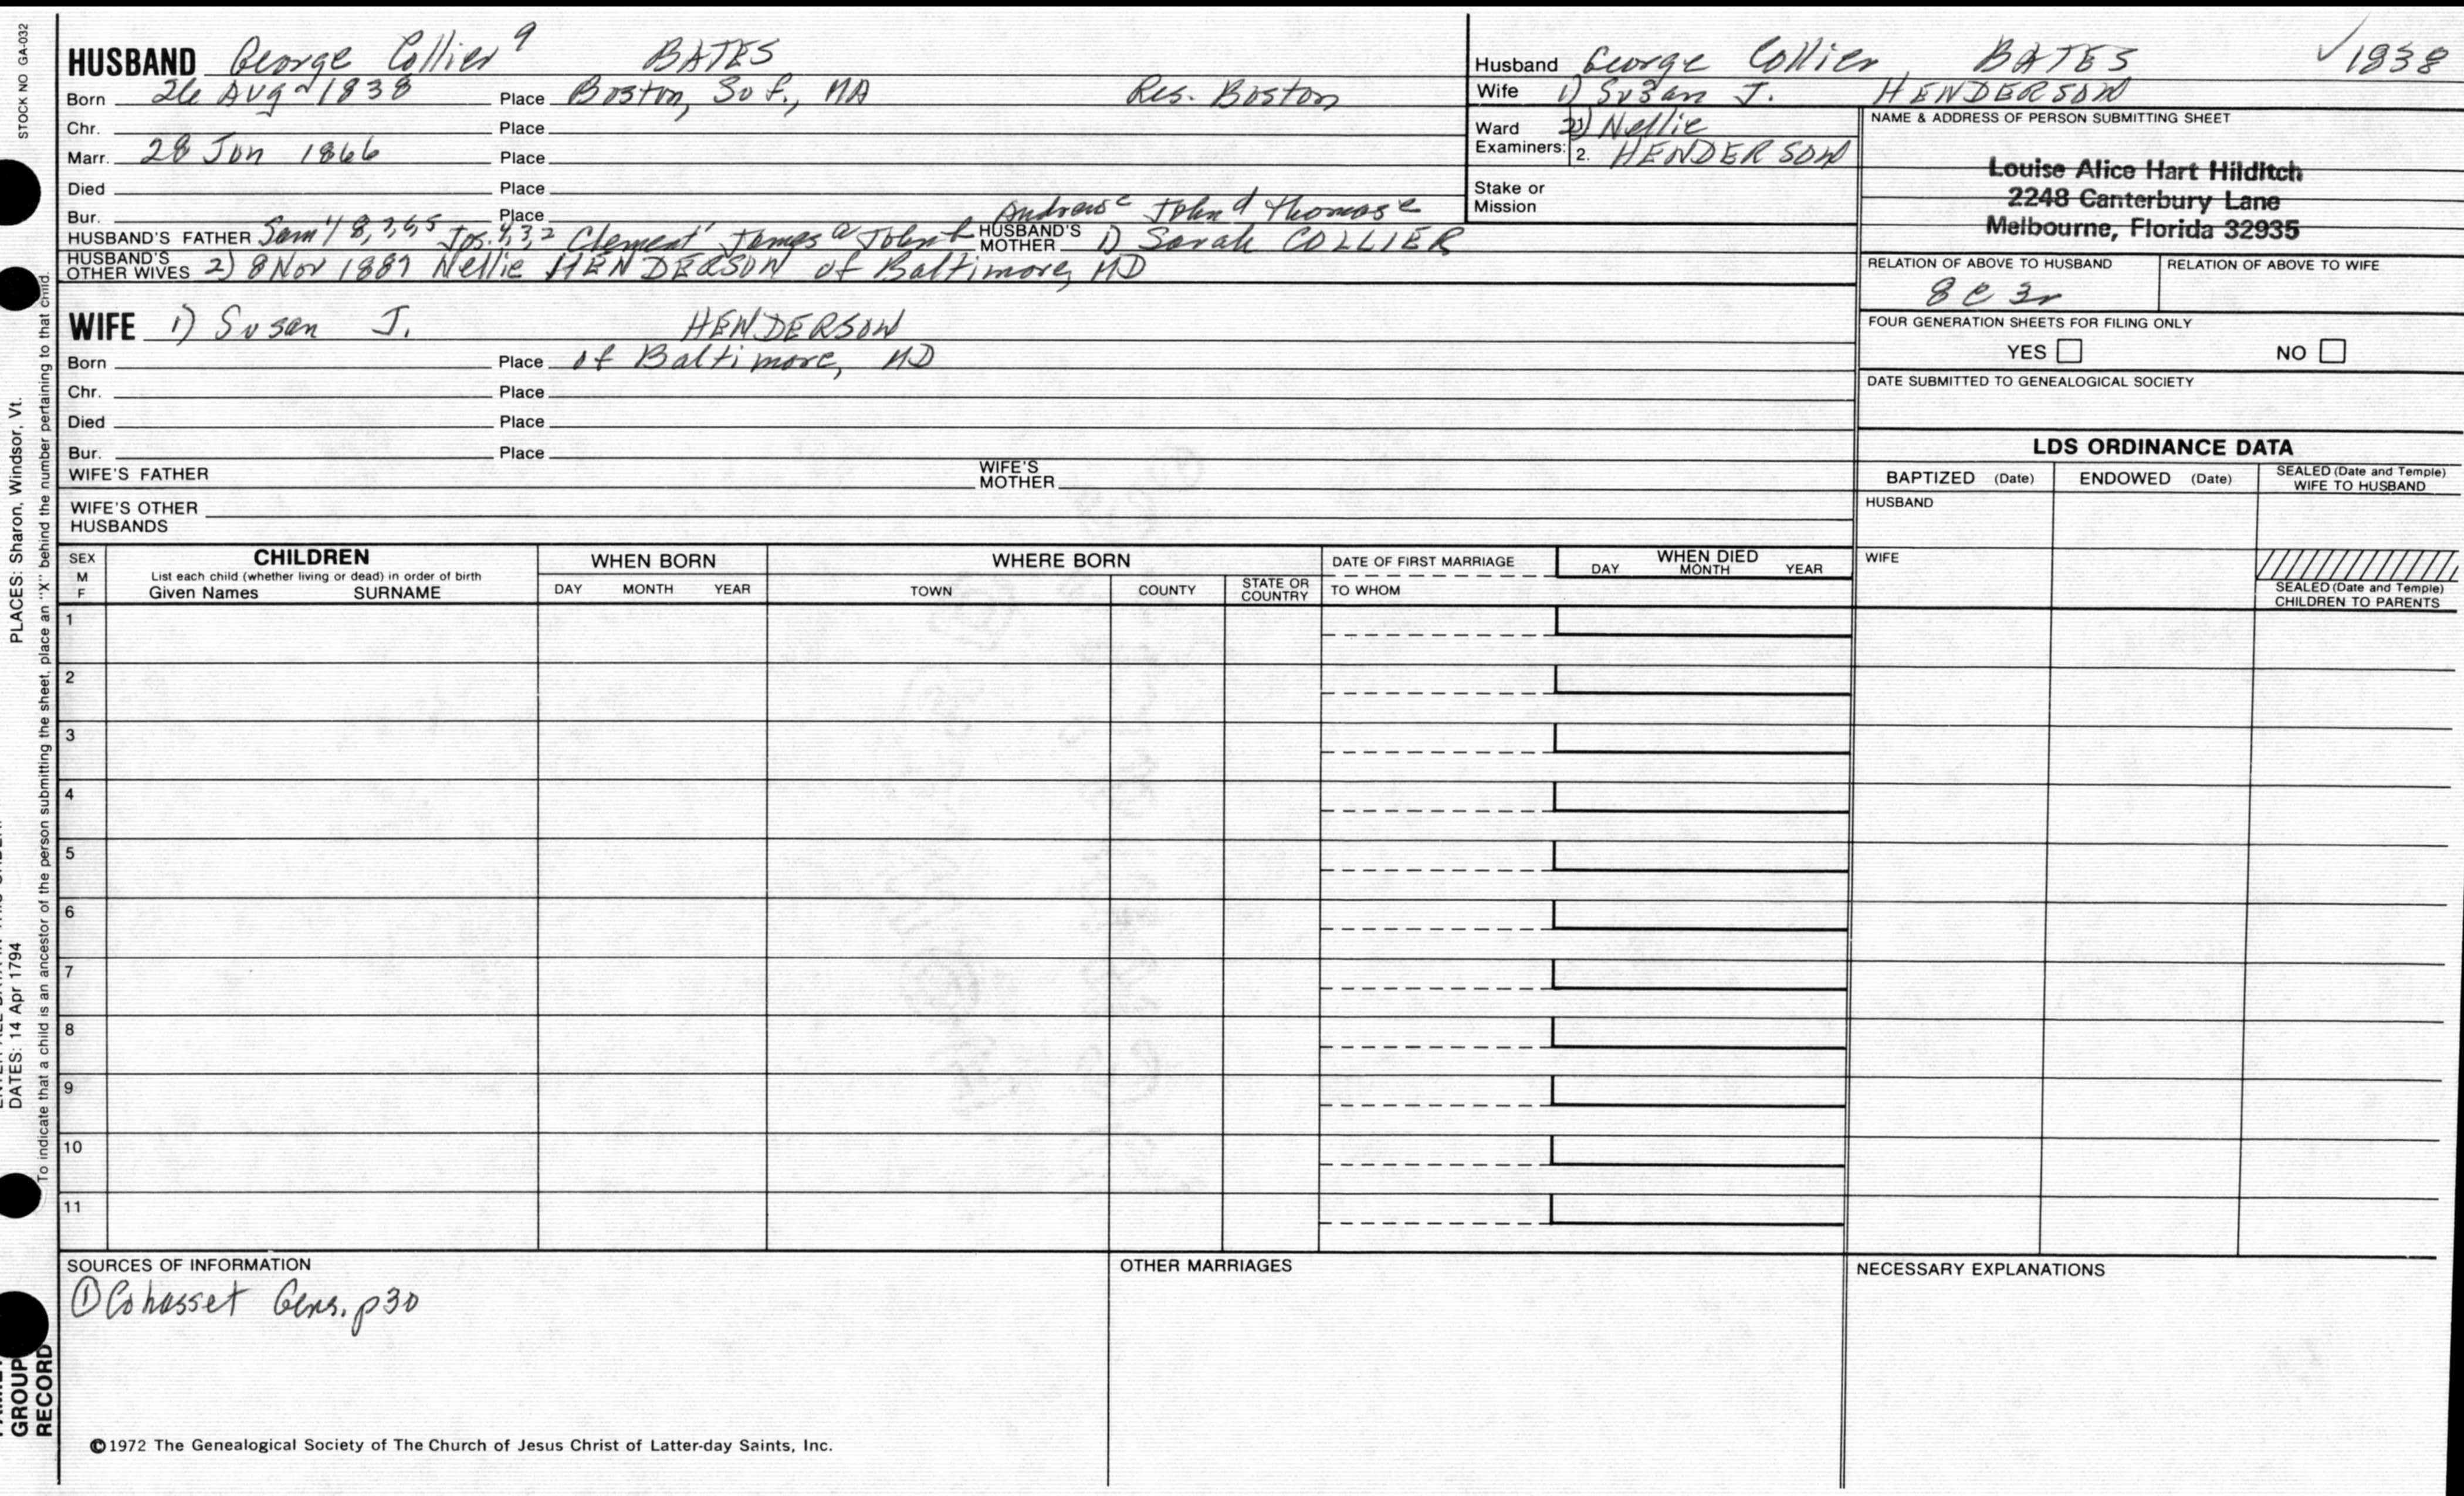 STOCK NO GA-032
PLACES: Sharon, Windsor, Vt.
DATES: 14 Apr 1794
To indicate that a child is an ancestor of the person submitting the sheet, place an "X" behind the number pertaining to that child.
GROUP
RECORD
HUSBAND George Collier 9 BATES
Born 26 Aug 1838 Place Boston, Suf., MA Res. Boston
Chr. Place
Marr. 28 Jun 1866 Place
Died Place
Bur. Place
Andrew c John d Thomas e
HUSBAND'S FATHER Sam'l 8,7,6,5 Jos. 4,3,2 Clement 1 James a John b HUSBAND'S MOTHER 1) Sarah COLLIER
HUSBAND'S OTHER WIVES 2) 8 Nov 1887 Nellie HENDERSON of Baltimore, MD
WIFE 1) Susan J. HENDERSON
Born Place of Baltimore, MD
Chr. Place
Died Place
Bur. Place
WIFE'S FATHER WIFE'S MOTHER
WIFE'S OTHER HUSBANDS
Husband George Collier BATES ✓1838
Wife 1) Susan J. HENDERSON
Ward 2) Nellie
Examiners: 2. HENDERSON
Stake or Mission
NAME & ADDRESS OF PERSON SUBMITTING SHEET
Louise Alice Hart Hilditch
2248 Canterbury Lane
Melbourne, Florida 32935
RELATION OF ABOVE TO HUSBAND RELATION OF ABOVE TO WIFE
8 c 3r
FOUR GENERATION SHEETS FOR FILING ONLY
YES NO
DATE SUBMITTED TO GENEALOGICAL SOCIETY
LDS ORDINANCE DATA
BAPTIZED (Date) ENDOWED (Date) SEALED (Date and Temple) WIFE TO HUSBAND
HUSBAND
WIFE
SEALED (Date and Temple) CHILDREN TO PARENTS
SEX M F
CHILDREN
List each child (whether living or dead) in order of birth
Given Names SURNAME
WHEN BORN
DAY MONTH YEAR
WHERE BORN
TOWN COUNTY STATE OR COUNTRY
DATE OF FIRST MARRIAGE
TO WHOM
WHEN DIED
DAY MONTH YEAR
1
2
3
4
5
6
7
8
9
10
11
SOURCES OF INFORMATION
① Cohasset Gens. p30
OTHER MARRIAGES
NECESSARY EXPLANATIONS
©1972 The Genealogical Society of The Church of Jesus Christ of Latter-day Saints, Inc.